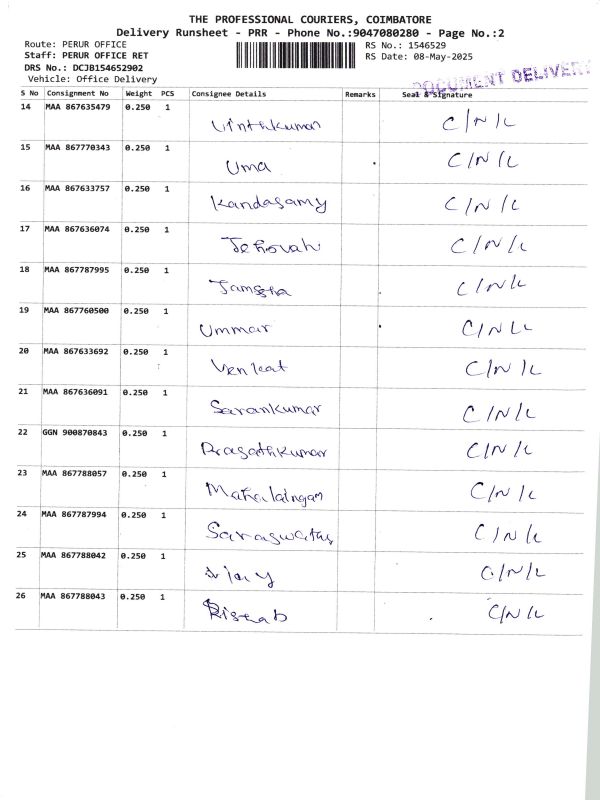 THE PROFESSIONAL COURIERS, COIMBATORE
Delivery Runsheet - PRR - Phone No.:9047080280 - Page No.:2
Route: PERUR OFFICE
Staff: PERUR OFFICE RET
DRS No.: DCJB154652902
Vehicle: Office Delivery
RS No.: 1546529
RS Date: 08-May-2025
DOCUMENT DELIVERY
S No Consignment No Weight PCS Consignee Details Remarks Seal & Signature
14 MAA 867635479 0.250 1 Vinthkumar C/N/L
15 MAA 867770343 0.250 1 Uma C/N/L
16 MAA 867633757 0.250 1 Kandasamy C/N/L
17 MAA 867636074 0.250 1 Jehovah C/N/L
18 MAA 867787995 0.250 1 C/N/L
19 MAA 867760500 0.250 1 Ummar C/N/L
20 MAA 867633692 0.250 1 Venkat C/N/L
21 MAA 867636091 0.250 1 Sarankumar C/N/L
22 GGN 900870843 0.250 1 Pragathkumar C/N/L
23 MAA 867788057 0.250 1 Mahalaingam C/N/L
24 MAA 867787994 0.250 1 C/N/L
25 MAA 867788042 0.250 1 C/N/L
26 MAA 867788043 0.250 1 Rishab C/N/L